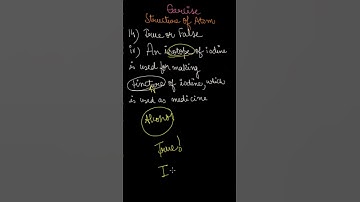 Exercise
Structure of Atom
14) True or False
iv) An isotope of iodine
is used for making
tincture of iodine, which
is used as medicine
True!
I